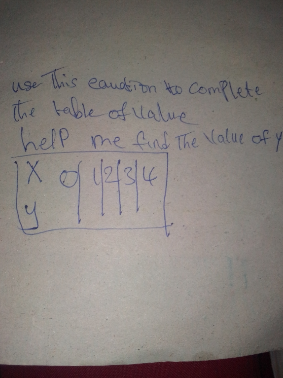 use This eaudtion to complete
the table of Value
help me find The Value of y
X 0 1 2 3 4
y